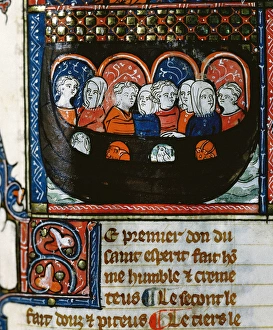 Le premier don du
saint esperit fait hõ
me humble & creme
teus Le secont le
fait douz & piteus Le tiers le